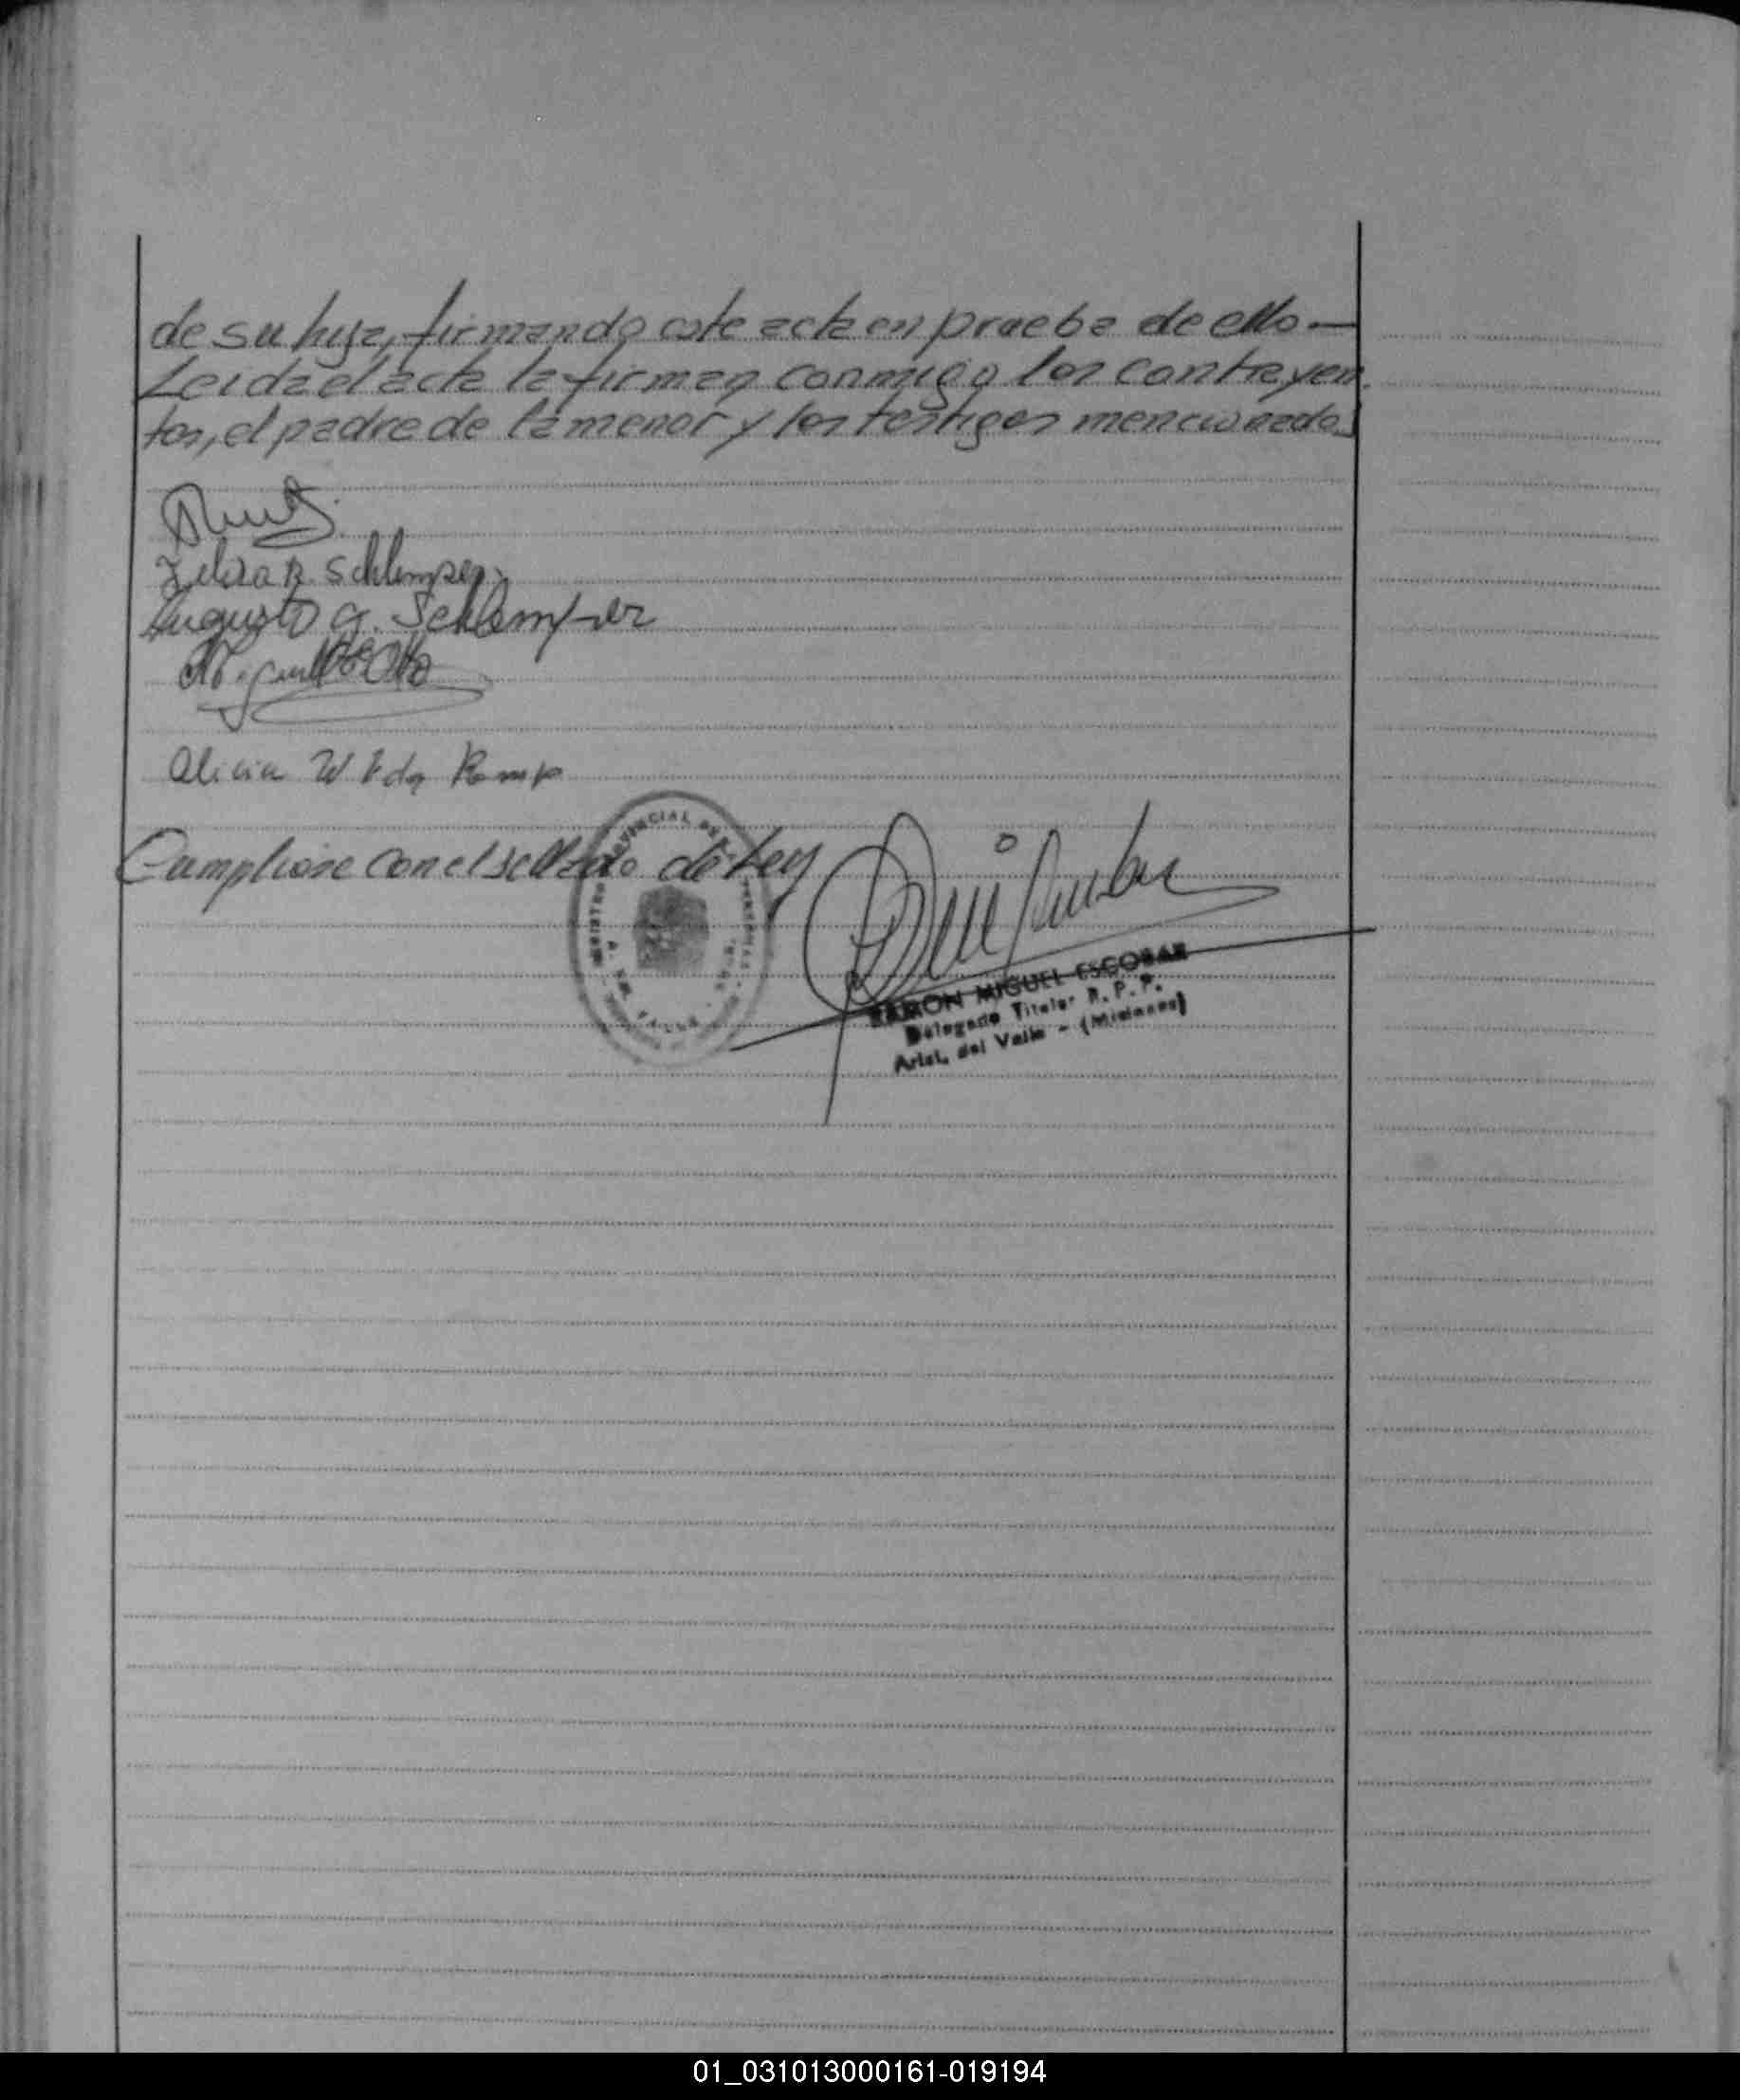 de su hija, firmando este acta en prueba de ello.—
Leida el acta la firman conmigo los contrayen
tes, el padre de la menor y los testigos mencionados
Schlemper
Augusto G. Schlemper
Alicia W Vda Kemp
Cumpliose con el sellado de Ley
RAMON MIGUEL ESCOBAR
Delegado Titular R. P. P.
Arist. del Valle - (Misiones)
01_031013000161-019194